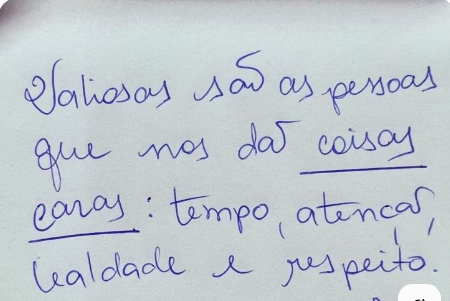 Valiosas são as pessoas
que nos dão coisas
caras: tempo, atenção,
lealdade e respeito.